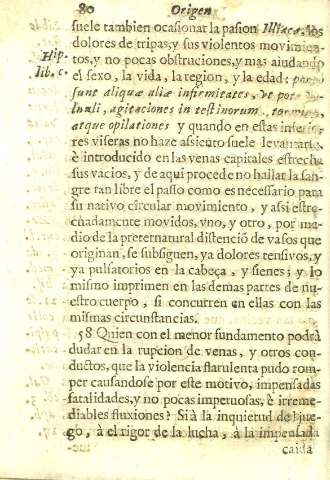 80 Origen
suele tambien ocasionar la pasion Illiaca, los
dolores de tripas, y sus violentos movimien-
Hip. tos, y no pocas obstruciones, y mas aiudando
lib. c. el sexo, la vida, la region, y la edad: 
sunt aliquæ aliæ infirmitates, vt pot
agitaciones in testinorum,
atque opilationes y quando en estas inferio-
res viseras no haze assiento suele levantarse,
è introducido en las venas capitales estrecha
sus vacios, y de aqui procede no hallar la san-
gre tan libre el passo como es necessario para
su nativo circular movimiento, y assi estre-
chadamente movidos, vno, y otro, por me-
dio de la preternatural distenciõ de vasos que
originan, se subsiguen, ya dolores tensivos, y
ya pulsatorios en la cabeça, y sienes; y lo
mismo imprimen en las demas partes de nu-
estro cuerpo, si concurren en ellas con las
mismas circunstancias.
58 Quien con el menor fundamento podrà
dudar en la rupcion de venas, y otros con-
ductos, que la violencia flatulenta pudo rom-
per causandose por este motivo, impensadas
fatalidades, y no pocas impetuosas, è irreme-
diables fluxiones? Si à la inquietud del jue-
go, à el rigor de la lucha, à la impensada
caida